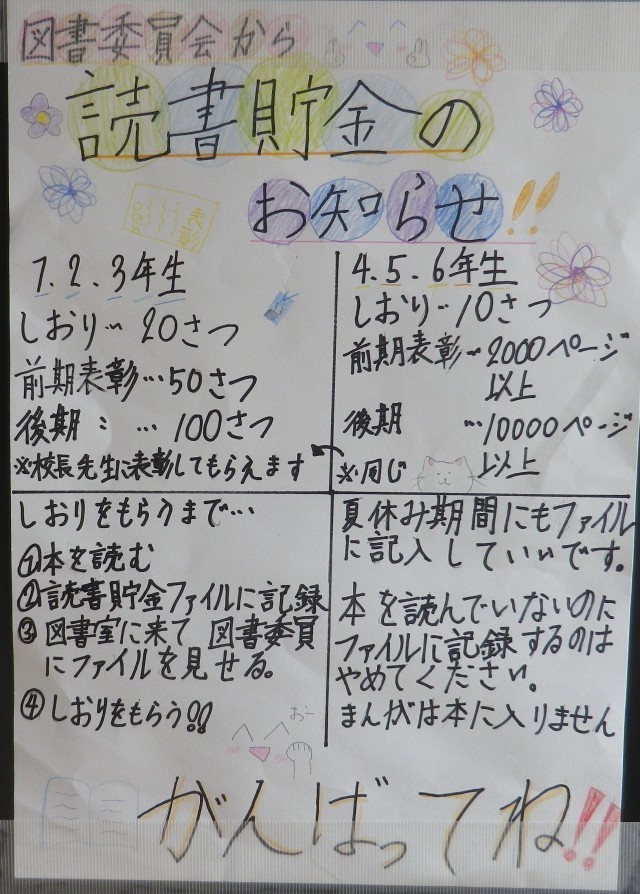 図書委員会から
読書貯金の
お知らせ!!
表彰
1.2.3年生
しおり…20さつ
前期表彰…50さつ
後期 〃 …100さつ
※校長先生に表彰してもらえます
4.5.6年生
しおり…10さつ
前期表彰…2000ページ
以上
後期 …10000ページ
以上
※同じ
しおりをもらうまで…
①本を読む
②読書貯金ファイルに記録
③図書室に来て図書委員
にファイルを見せる。
④しおりをもらう!!
おー
夏休み期間にもファイル
に記入していいです。
本を読んでいないのに
ファイルに記録するのは
やめてください。
まんがは本に入りません
がんばってね!!